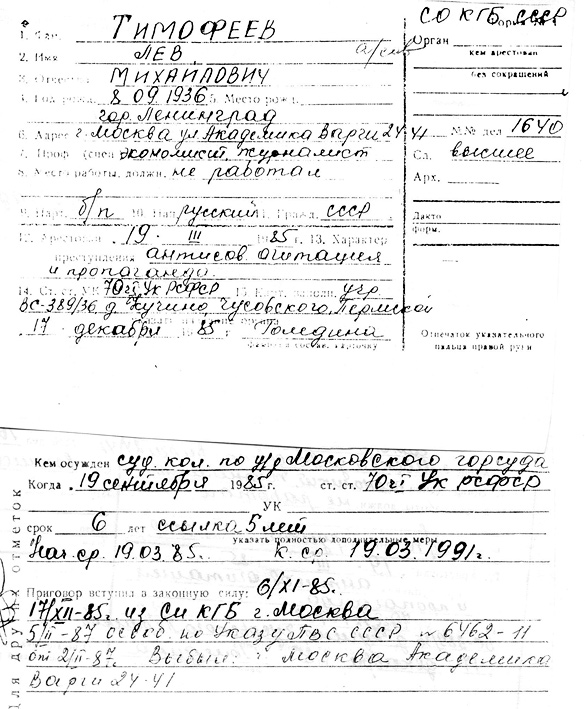 1. Фам. ТИМОФЕЕВ
2. Имя ЛЕВ
3. Отчество МИХАИЛОВИЧ
4. Год рожд. 8 09. 1936 5. Место рожд.
гор. Ленинград
6. Адрес г. Москва ул Академика Варги 24-41
7. Проф. (спец экономист, журналист
8. Место работы, должн. не работал
9. Парт. б/п 10. Нац. русский 11. Гражд. СССР
12. Арестован 19. III 1985 г. 13. Характер
преступления антисов агитация
и пропаганда.
14. Ст. ст. УК 70 ч I УК РСФСР 15. Карт. заполн. учр
ВС-389/36 д Кучино, Чусовского, Пермской
17. декабря 1985 г Голедина
СО КГБ СССР
Форма № 1
Орган
кем арестован
без сокращений
№№ дел 1640
Сл. высшее
Арх.
Дакто
форм.
Отпечаток указательного
пальца правой руки
Для других отметок
Кем осужден суд. кол. по у/д Московского горсуда
Когда 19 сентября 1985 г. ст. ст. 70 ч I УК РСФСР
УК
срок 6 лет ссылка 5 лет
указать полностью дополнительные меры
Нач. ср. 19.03.85. к. ср. 19.03.1991г.
Приговор вступил в законную силу: 6/XI-85.
17/XII-85г. из СИ КГБ г. Москва
5/II-87 освоб. по Указу ПВС СССР № 6462-11
от 2/II-87. Выбыл: г Москва Академика
Варги 24-41